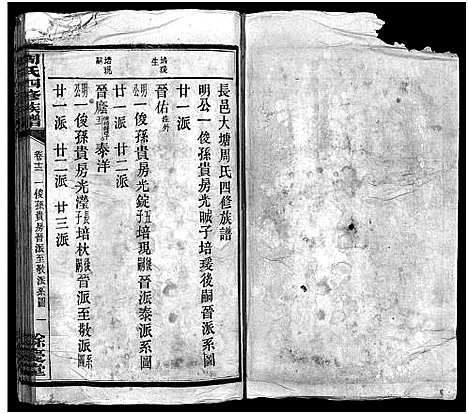 長邑大塘周氏四修族譜
明公一俊孫貴房光晠子培瑗後嗣晉派系圖
廿一派
晉佑 往外
培瑗生
明公一俊孫貴房光錠五子培現後嗣晉派泰派系圖
廿一派 廿二派
晉麿 泰洋
培現嗣
明公一俊孫貴房光瀅長子培杕後嗣晉派至敬派系圖
廿一派 廿二派 廿三派
周氏四修族譜
卷十二
一俊孫貴房晉派至敬派系圖
一
餘慶堂